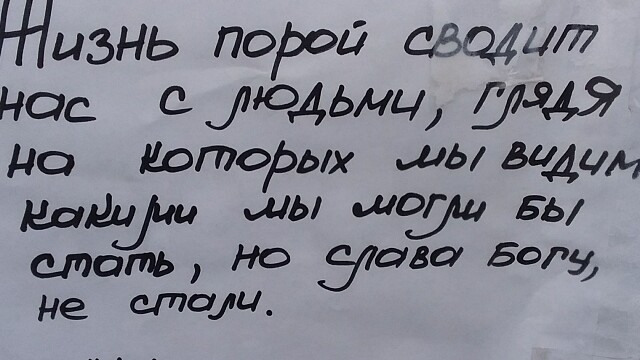 Жизнь порой сводит
нас с людьми, глядя
на которых мы видим
какими мы могли бы
стать, но слава богу,
не стали.